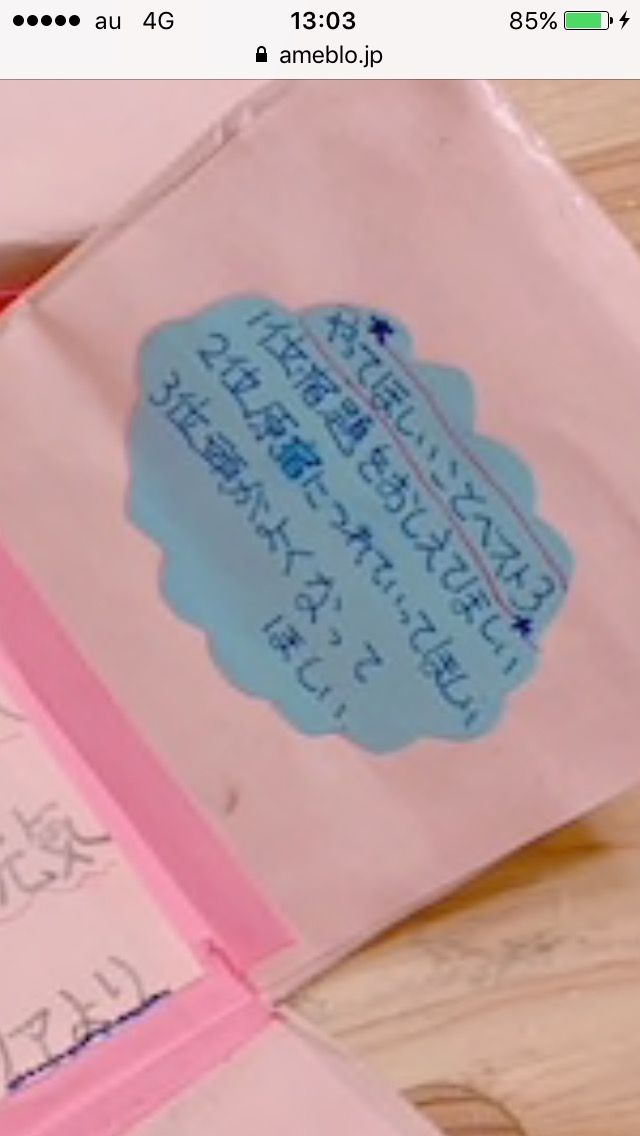 au 4G 13:03 85%
ameblo.jp
★やってほしいことベスト3★
1位宿題をおしえてほしい
2位原宿につれていってほしい
3位頭がよくなって
ほしい
元気
アより